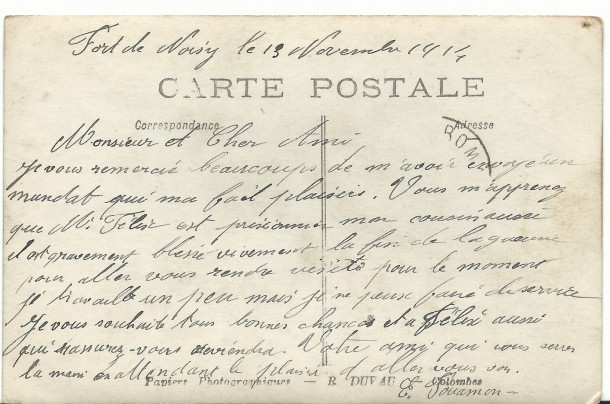 Fort de Noisy le 13 Novembre 1914
CARTE POSTALE
Correspondance
Adresse
Monsieur et Cher Ami
Je vous remercie beaucoups de m'avoir envoyé un
mandat qui ma fait plaisir. Vous m'apprenez
que Mr Félix est prisionnier mon cousin aussi
il est gravement blessé vivement la fin de la guerre
pour aller vous rendre visite pour le moment
je travaille un peu mais je ne peux faire de service
Je vous souhaite tous bonnes chances et a Félix aussi
qui rassurez-vous reviendra. Votre ami qui vous serre
la main en attendant le plaisir d'aller vous voir.
Papiers Photographiques — R. DUVAU Colombes
E.